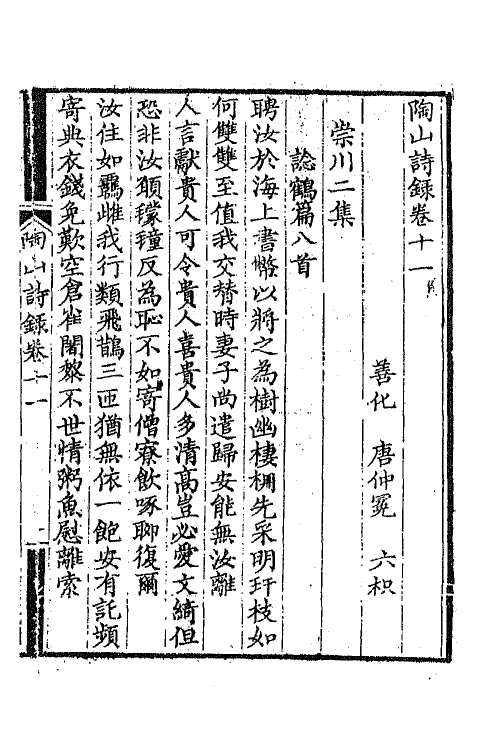 陶山詩錄卷十一
善化　唐仲冕　六枳
崇川二集
諗鶴篇八首
聘汝於海上書幣以將之為樹幽棲柵先采明玕枝如
何雙雙至值我交替時妻子尚遣歸安能無汝離
人言獻貴人可令貴人喜貴人多清高豈必愛文綺但
恐非汝願氋氃反為恥不如寄僧寮飲啄聊復爾
汝住如鸜雌我行類飛鵲三匝猶無依一飽安有託頻
寄典衣錢免歎空倉雀闍黎不世情粥魚慰離索
陶山詩錄卷十一
一